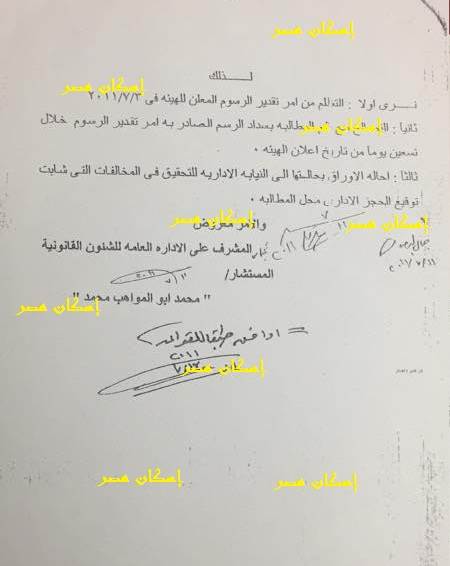 إسكان مصر
لـــذلك
نــرى اولا : التظلم من امر تقدير الرسوم المعلن للهيئه فى ٢٠١١/٧/٣
إسكان مصر
ثانيا : المطالبه بسداد الرسم الصادر به امر تقدير الرسوم خلال
إسكان مصر
تسعين يوما من تاريخ اعلان الهيئه .
ثالثا : احاله الاوراق بحالتها الى النيابه الاداريه للتحقيق فى المخالفات التى شابت
توقيع الحجز الادارى محل المطالبه .
إسكان مصر
إسكان مصر
والامر معروض
المشرف على الاداره العامه للشئون القانونية
المستشار/
" محمد ابو المواهب محمد "
إسكان مصر
اوافق طبقا للقواعد
٢٠١١
إسكان مصر
إسكان مصر
إسكان مصر